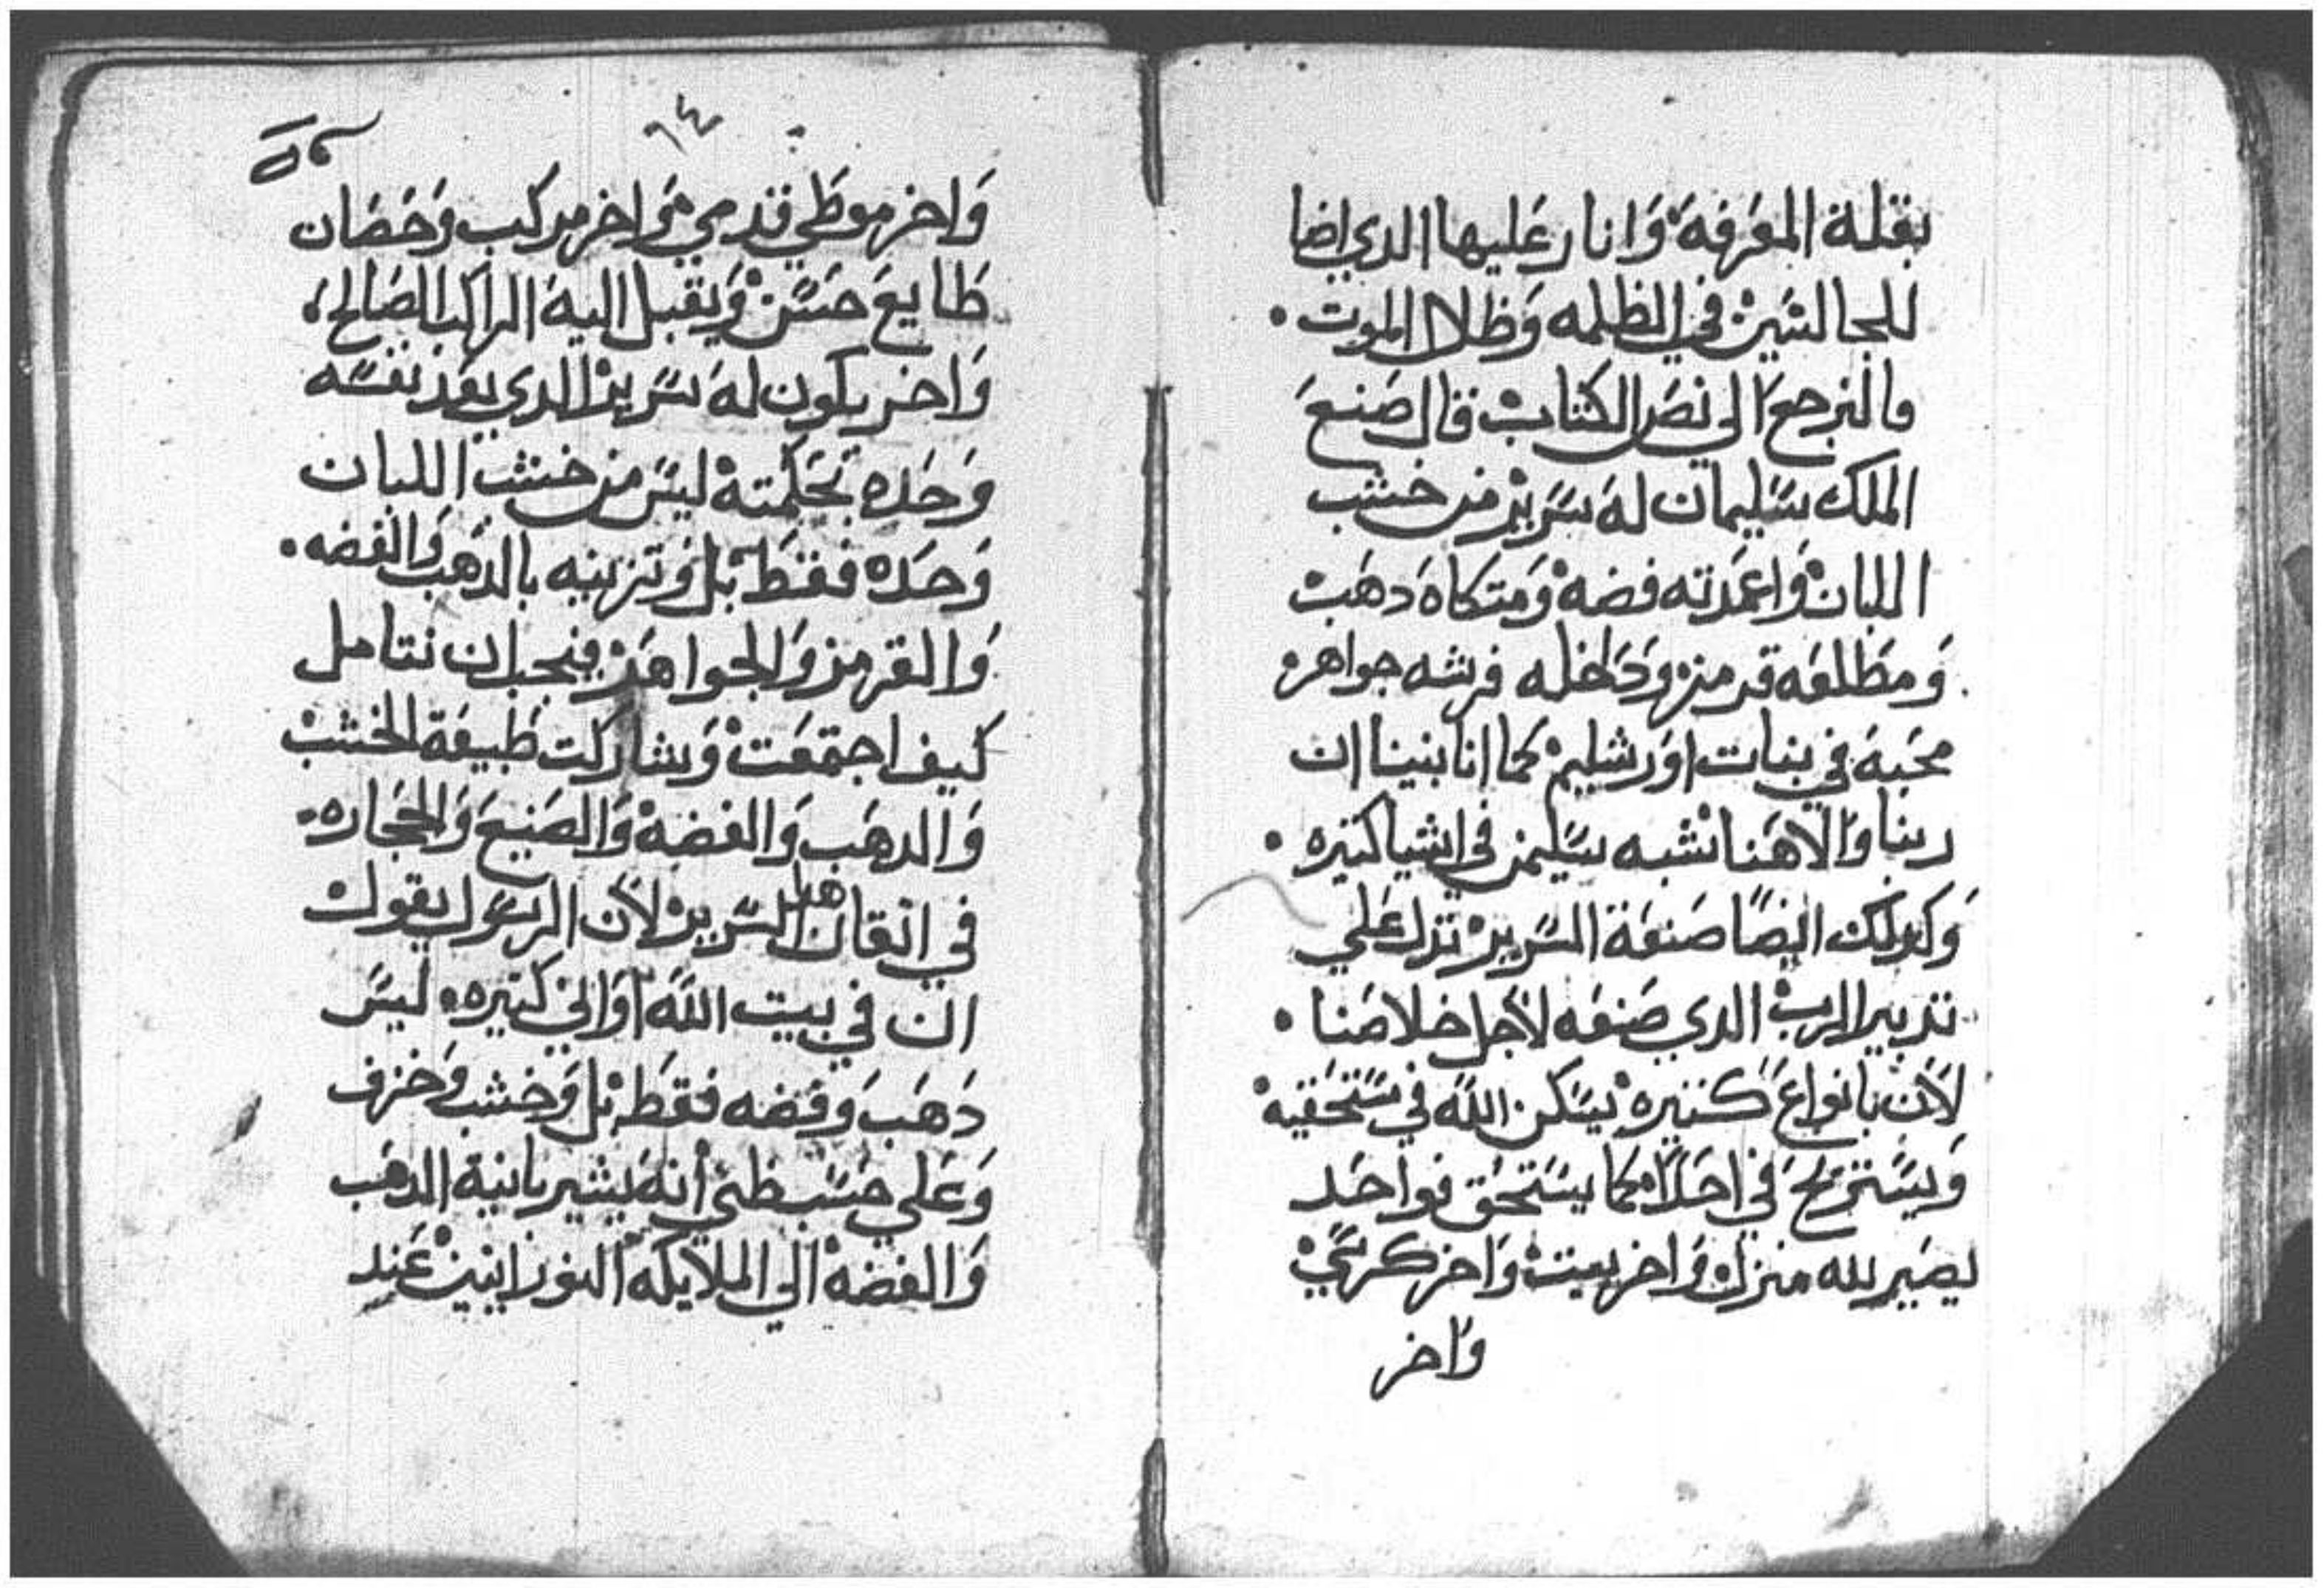 بقلة المعرفة وانار عليها الدي اضا
للجالسين في الظلمه وظلال الموت.
فالنرجع الي نص الكتاب قال صنع
الملك سليمان له سرير من خشب
اللبان واعمدته فضة ومتكاه دهب
ومطلعه قرمز وداخله فرشه جواهر
محبة في بنات اورشليم كما اننا بينا ان
ربنا والاهنا نشبه سليمن في اشيا كتيره.
وكدلك ايضا صنعة السرير تدل علي
تدبير الرب الدي صنعه لاجل خلاصنا.
لان بانواع كتيره يسكن الله في مستحقيه
ويستريح في احدا كما يستحق فواحد
يصير لله منزل واخر بيت واخر كرسي
واخر
٦٤
واخر موطي قدمي واخر مركب وحصان
طايع حسن ويقبل اليه الراكب الصالح،
واخر يكون له سرير الدي يعد نفسه
وحده بحكمته ليس من خشب اللبان
وحده فقط بل وتزينه بالدهب والفضه.
والقرمز والجواهر فيجب ان نتامل
كيف اجتمعت وشاركت طبيعة الخشب
والدهب والفضه والصنيع والحجاره.
في اتقان هدا السرير لان الرسول يقول
ان في بيت الله اواني كتيره. ليس
دهب وفضه فقط بل وخشب وخزف
وعلي حسب ظني انه يشير بانية الدهب
والفضه الي الملايكه النورانيين عند